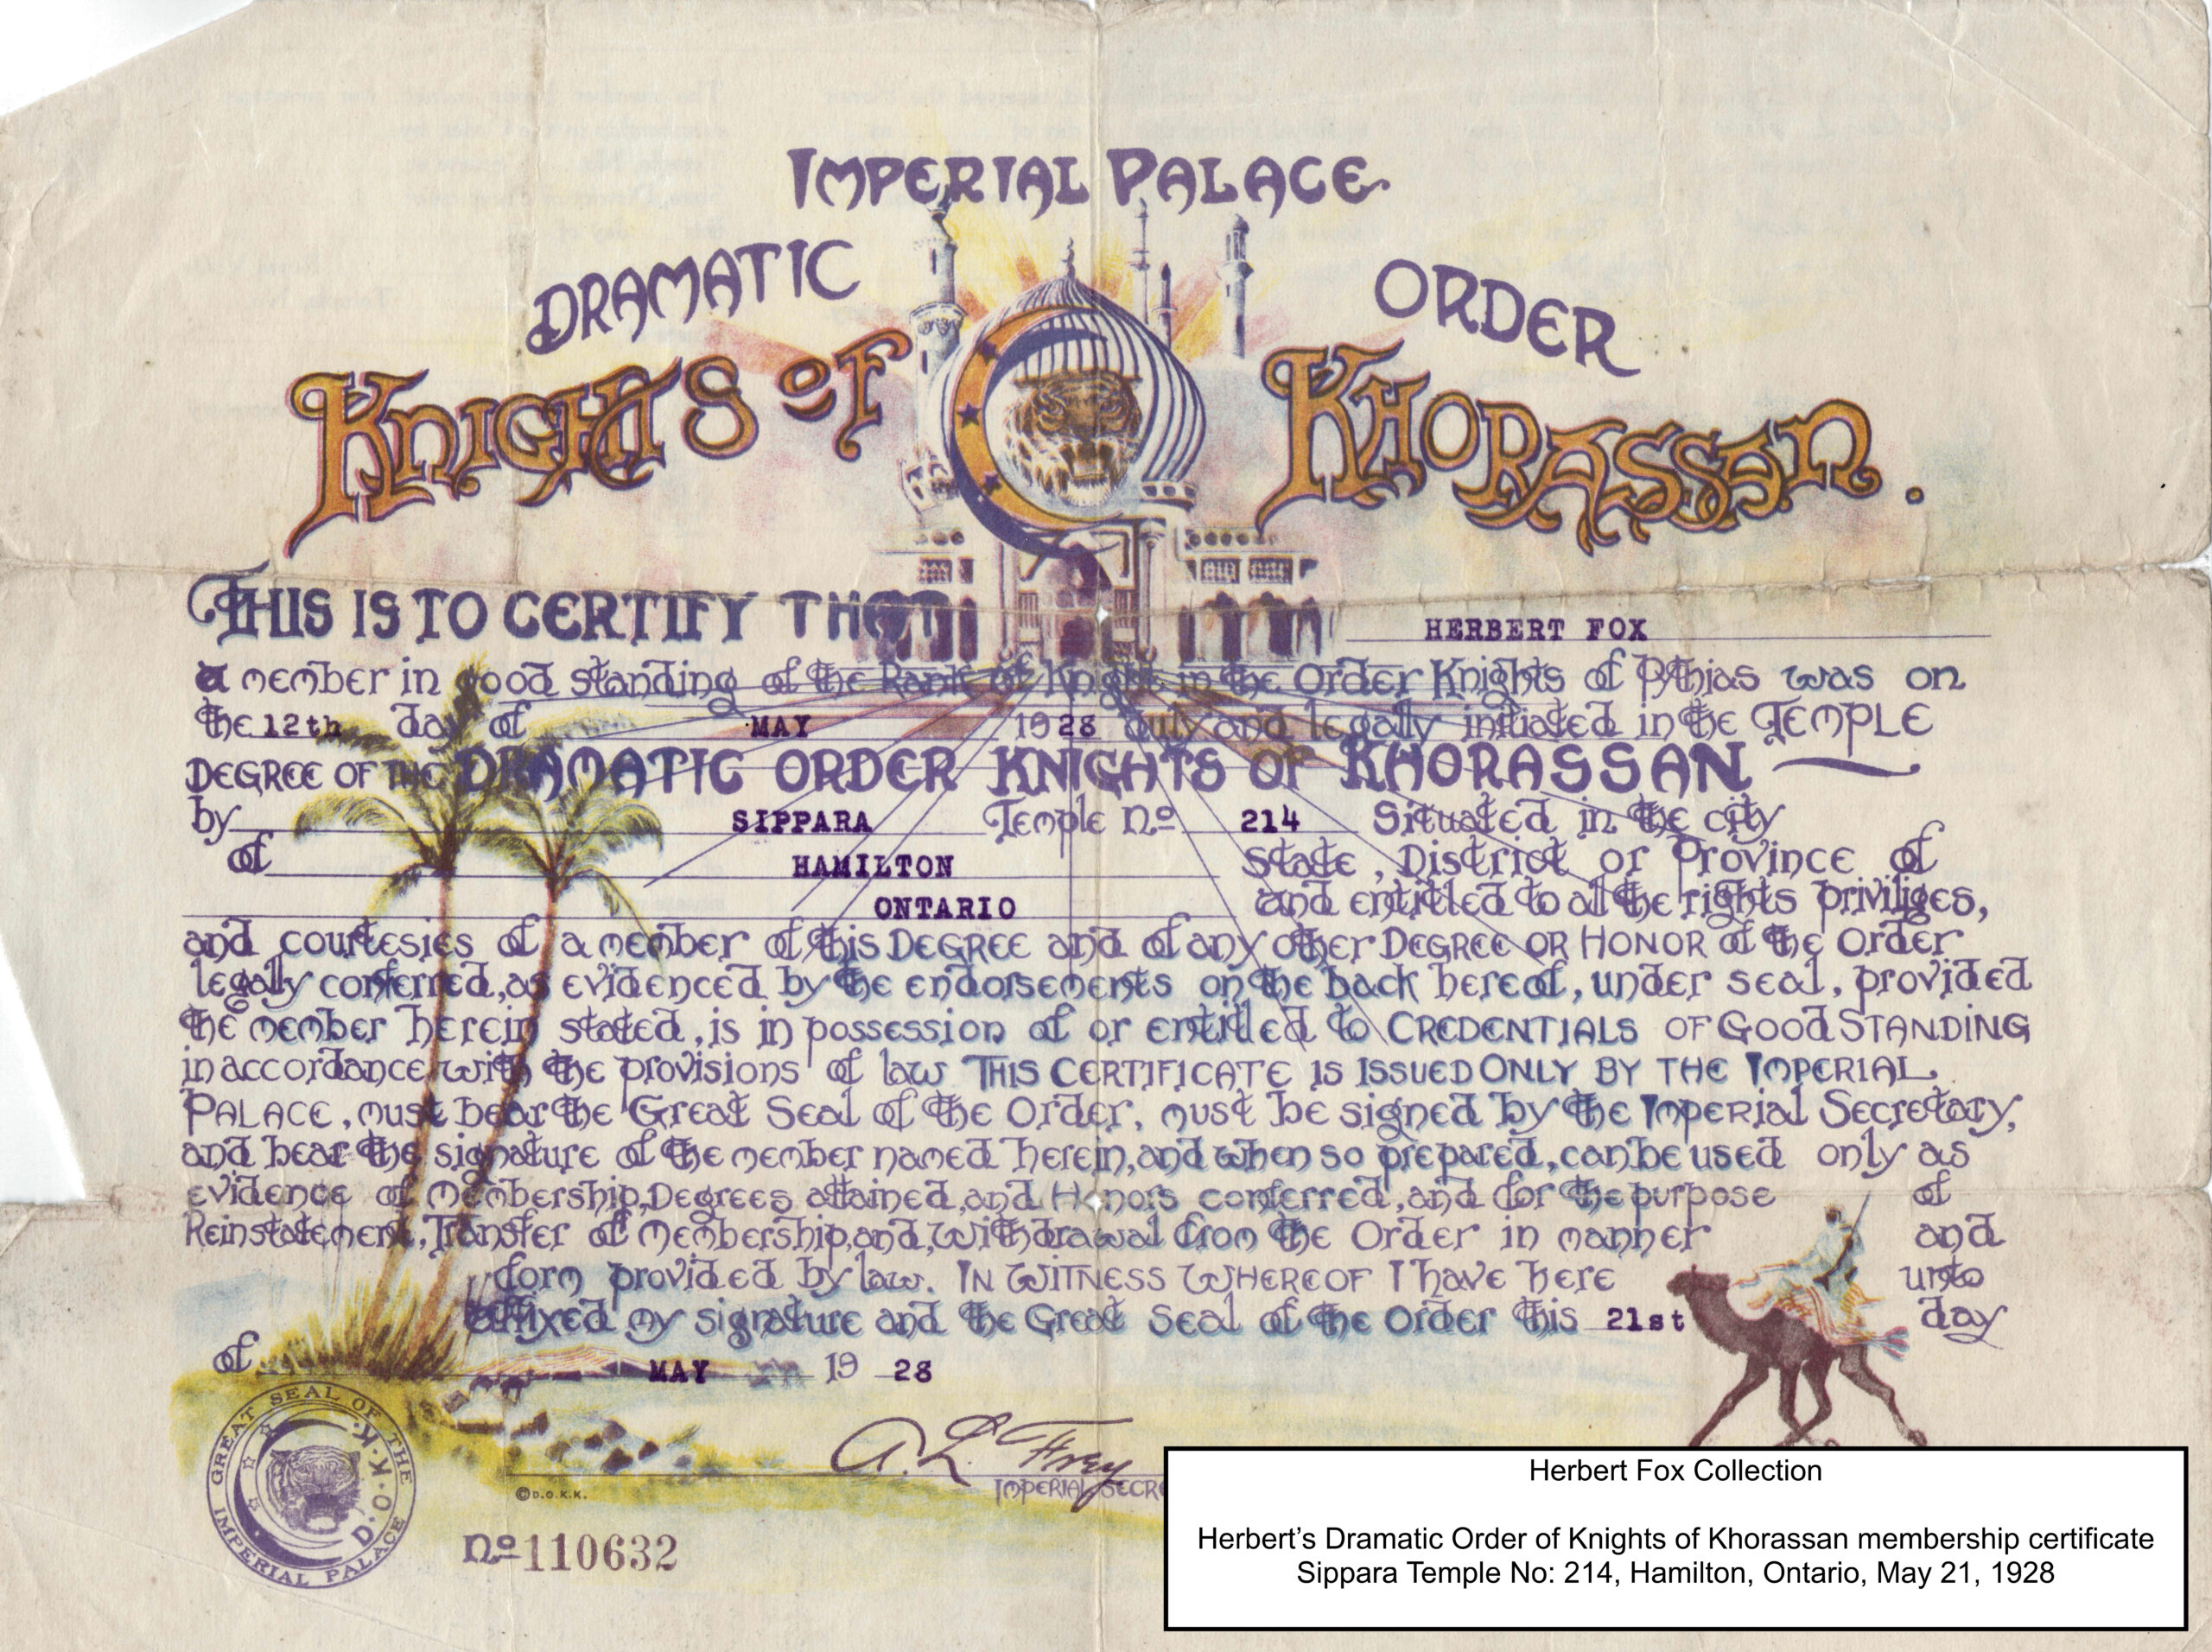 IMPERIAL PALACE
DRAMATIC ORDER
KNIGHTS OF KHORASSAN.
THIS IS TO CERTIFY THAT HERBERT FOX
a member in good standing of the Rank of Knight in the Order Knights of Pythias was on
the 12th day of MAY 1928 duly and legally initiated in the TEMPLE
DEGREE OF THE DRAMATIC ORDER KNIGHTS OF KHORASSAN
by SIPPARA Temple No 214 Situated in the city
of HAMILTON State, District or Province of
ONTARIO and entitled to all the rights priviliges,
and courtesies of a member of this DEGREE and of any other DEGREE OR HONOR of the Order
legally conferred, as evidenced by the endorsements on the back hereof, under seal, provided
the member herein stated, is in possession of or entitled to CREDENTIALS OF GOOD STANDING
in accordance with the provisions of law THIS CERTIFICATE IS ISSUED ONLY BY THE IMPERIAL
PALACE, must bear the Great Seal of the Order, must be signed by the Imperial Secretary,
and bear the signature of the member named herein, and when so prepared, can be used only as
evidence of Membership, Degrees attained, and Honors conferred, and for the purpose of
Reinstatement, Transfer of Membership, and, withdrawal from the Order in manner and
form provided by law. IN WITNESS WHEREOF I have here unto
affixed my signature and the Great Seal of the Order this 21st day
of MAY 19 28
GREAT SEAL OF THE IMPERIAL PALACE
D.O.K.K.
A. L. Frey
©D.O.K.K.
IMPERIAL SECR
No 110632
Herbert Fox Collection
Herbert’s Dramatic Order of Knights of Khorassan membership certificate
Sippara Temple No: 214, Hamilton, Ontario, May 21, 1928